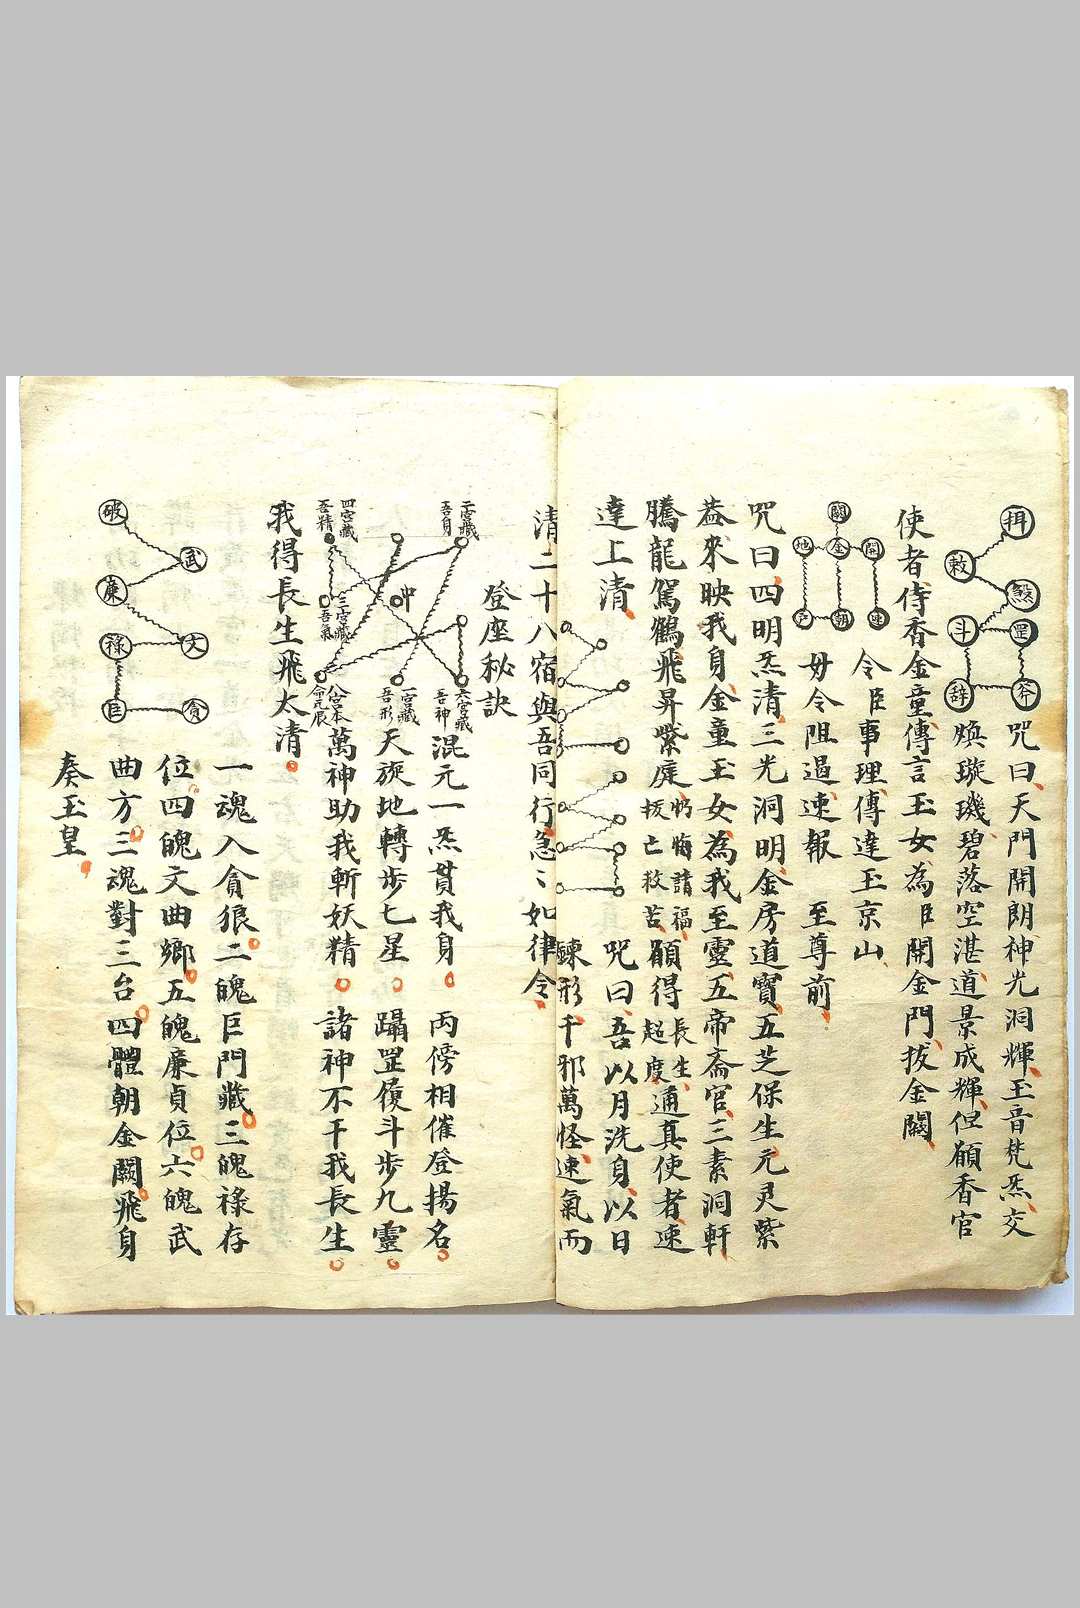 咒曰天門開朗神光洞輝玉音梵炁交
煥璇璣碧落空湛道景成輝但願香官
使者侍香金童傳言玉女為臣開金門拔金闕
令臣事理傳達玉京山
毋令阻過速報 至尊前
咒曰四明炁清三光洞明金房道寶五芝保生元灵紫
蓋來映我身金童玉女為我至靈五帝斎官三素洞軒
騰龍駕鶴飛昇紫庭
悔請福
拔亡救苦
願得
長生
超度
通真使者速
達上清
咒曰吾以月洗身以日
鍊形千邪萬怪速氣而
清二十八宿與吾同行急〻如律令
登座秘訣
混元一炁貫我身 两傍相催登揚名
天旋地轉步七星 躡罡履斗步九靈
萬神助我斬妖精 諸神不干我長生
我得長生飛太清
二宮藏
吾身
六宮藏
吾神
一宮藏
吾形
冲
四宮藏
吾精
三宮藏
吾氣
八宮本
命元辰
一魂入貪狼二魄巨門藏三魄祿存
位四魄文曲鄉五魄廉貞位六魄武
曲方三魂對三台四體朝金闕飛身
奏玉皇
破
武
廉
文
祿
貪
巨
斗
罡
地
金
開
戶
朝